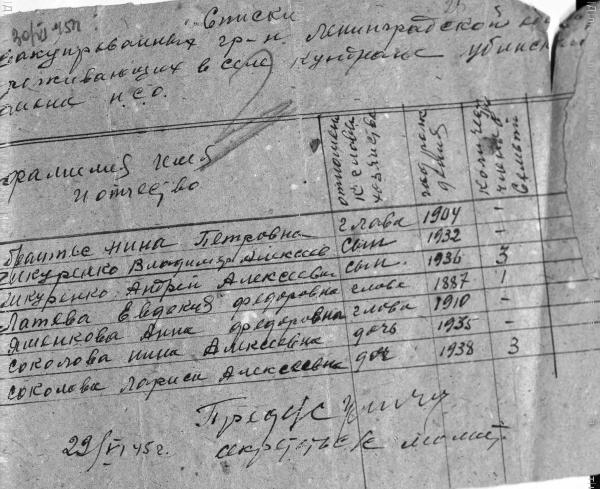 30/VI 45г
Списки
эвакуированных гр-н Ленинградской
проживающих в селе Кундраль Убинского
района Н.С.О.
Фамилия имя
и отчество
отношен. к главе хозяйства
год рождения
колич. членов семьи
Нина Петровна глава 1904 1
Шкуренко Владимир Алексеев сын 1932 -
Шкуренко Андрей Алексеевич сын 1936 3
Латева Евдокия Федоровна глава 1887 1
Яшенкова Анна Федоровна глава 1910 -
Соколова Нина Алексеевна дочь 1935 -
Соколова Лариса Алексеевна доч 1938 3
Пред с/с
29/VI 45г. секретарь